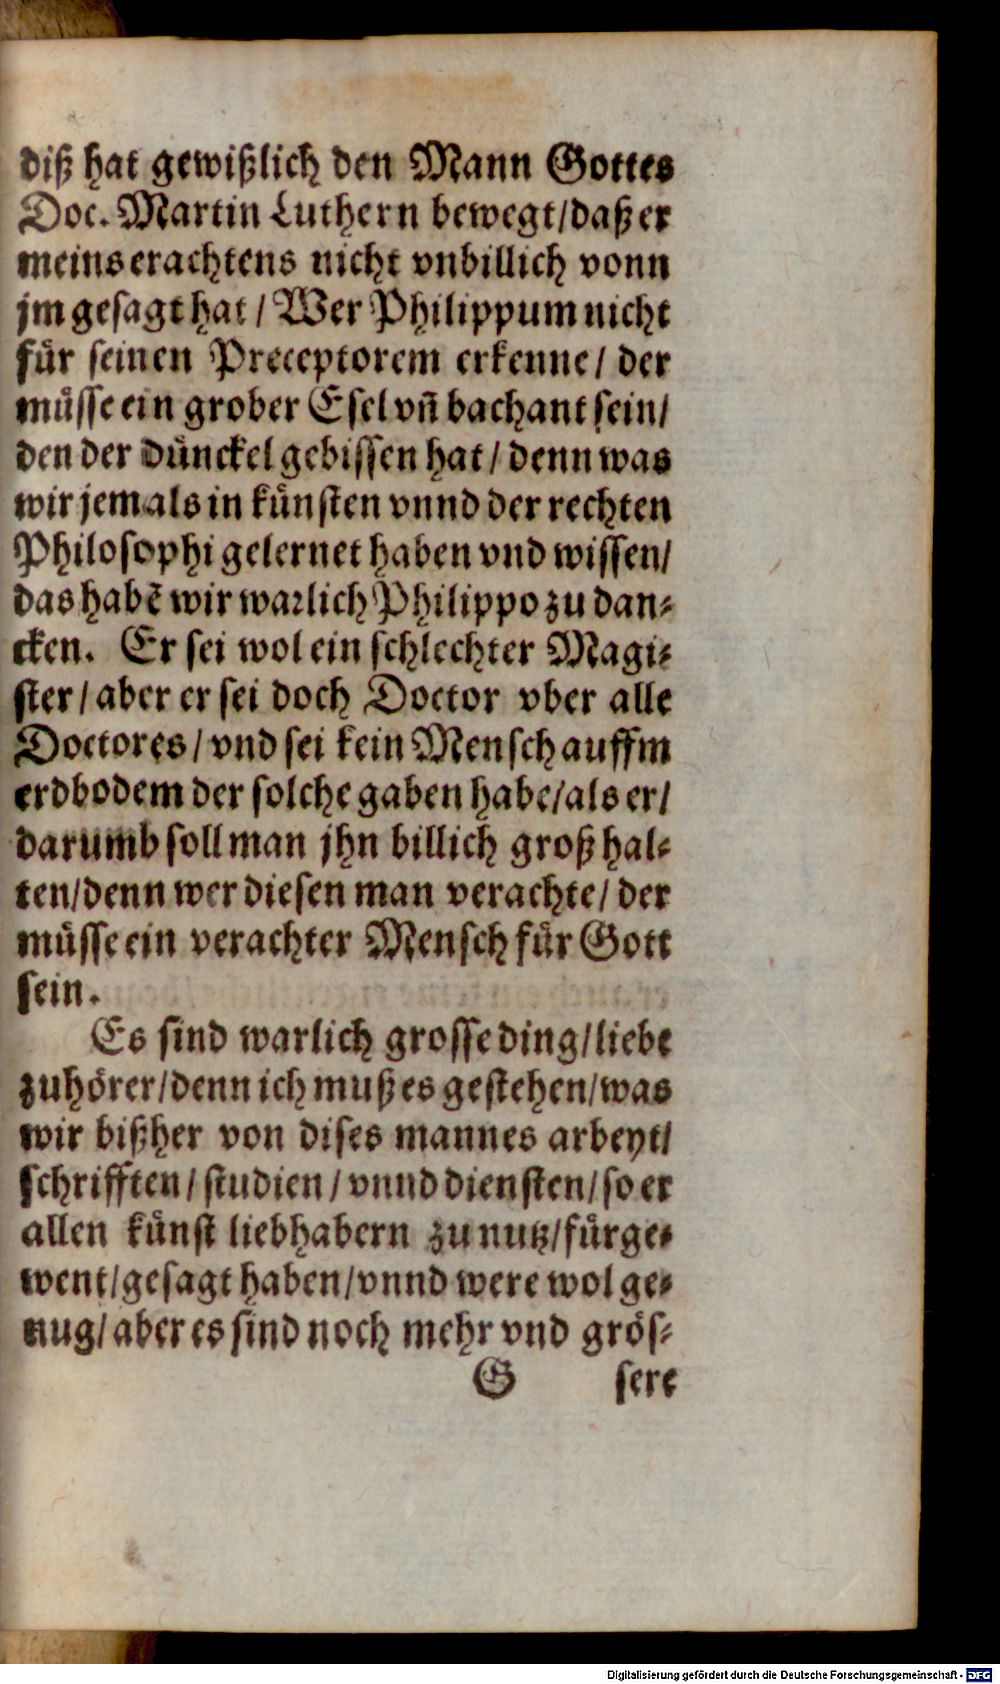 diß hat gewißlich den Mann Gottes
Doc. Martin Luthern bewegt/daß er
meins erachtens nicht vnbillich vonn
jm gesagt hat / Wer Philippum nicht
für seinen Preceptorem erkenne / der
müsse ein grober Esel vñ bachant sein/
den der dünckel gebissen hat / denn was
wir jemals in künsten vnnd der rechten
Philosophi gelernet haben vnd wissen/
das habẽ wir warlich Philippo zu dan-
cken. Er sei wol ein schlechter Magi-
ster / aber er sei doch Doctor vber alle
Doctores / vnd sei kein Mensch auffm
erdbodem der solche gaben habe/als er/
darumb soll man jhn billich groß hal-
ten/denn wer diesen man verachte/ der
müsse ein verachter Mensch für Gott
sein.
Es sind warlich grosse ding/liebe
zuhörer/denn ich muß es gestehen/was
wir bißher von dises mannes arbeyt/
schrifften / studien / vnnd diensten/ so er
allen künst liebhabern zu nutz/fürge-
went/gesagt haben/vnnd were wol ge-
nug/ aber es sind noch mehr vnd grös-
G sere
Digitalisierung gefördert durch die Deutsche Forschungsgemeinschaft - DFG